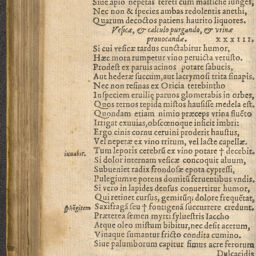 Siue apio nepetai tereti cum matiche iunges,
Nec non & species ambas redolentis anethi,
Quarum decoctos patiens haurito liquores.
Vesicæ, & calculo purgando, & vrinæ
prouocandæ. XXXIII.
Si cui vesicæ tardus cunctabitur humor,
Hæc mora rumpetur vino peruicta vetusto.
Prodest ex paruis acinos potare sabucis,
Aut hederæ succum, aut lacrymosi trita sinapis,
Nec non resinas ex Oricia terebintho
Inspeciem eruiliæ paruos glomerabis in orbes,
Quos ternos tepida mistos hausisse medela est.
Quondam etiam nimio præceps vrina fluctu
Irrigat exuuias, obscœnoque inficit imbri.
Ergo cinis cornu ceruini proderit haustus,
Vel neperæ ex vino tritum, vel lacte capellæ.
Tum leporis cerebrū ex vino potare † decebit.
iuuabit.
Si dolor internam vesicæ concoquit aluum,
Subueniet radix frondosæ epota cypressi,
Pulegiumve potens domiti feruentibus vndis.
Si vero in lapides densus conuertitur humor,
Qui retinet cursus, gemitusq; dolore frequētat,
Saxifraga seu † fontigenā succurrere credunt.
Præterea semen myrti syluestris Iaccho
Atque oleo mistum bibitur, nec desit acetum,
Vinaque sumantur fricto condita cumino.
Siue palumborum capitur fimus acre ferorum
Dulcacidis